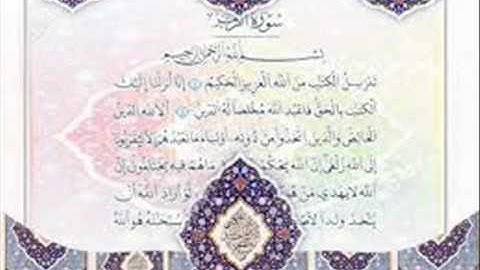 سُورَةُ الزُّمَرِ
بِسْمِ اللَّهِ الرَّحْمَٰنِ الرَّحِيمِ
تَنزِيلُ الْكِتَٰبِ مِنَ اللَّهِ الْعَزِيزِ الْحَكِيمِ ١ إِنَّا أَنزَلْنَا إِلَيْكَ
الْكِتَٰبَ بِالْحَقِّ فَاعْبُدِ اللَّهَ مُخْلِصًا لَهُ الدِّينَ ٢ أَلَا لِلَّهِ الدِّينُ
الْخَالِصُ وَالَّذِينَ اتَّخَذُوا مِن دُونِهِ أَوْلِيَاءَ مَا نَعْبُدُهُمْ إِلَّا لِيُقَرِّبُونَا
إِلَى اللَّهِ زُلْفَىٰ إِنَّ اللَّهَ يَحْكُمُ مَا هُمْ فِيهِ يَخْتَلِفُونَ إِنَّ
اللَّهَ لَا يَهْدِي مَنْ لَوْ أَرَادَ اللَّهُ أَن
يَتَّخِذَ وَلَدًا سُبْحَٰنَهُ هُوَ اللَّهُ